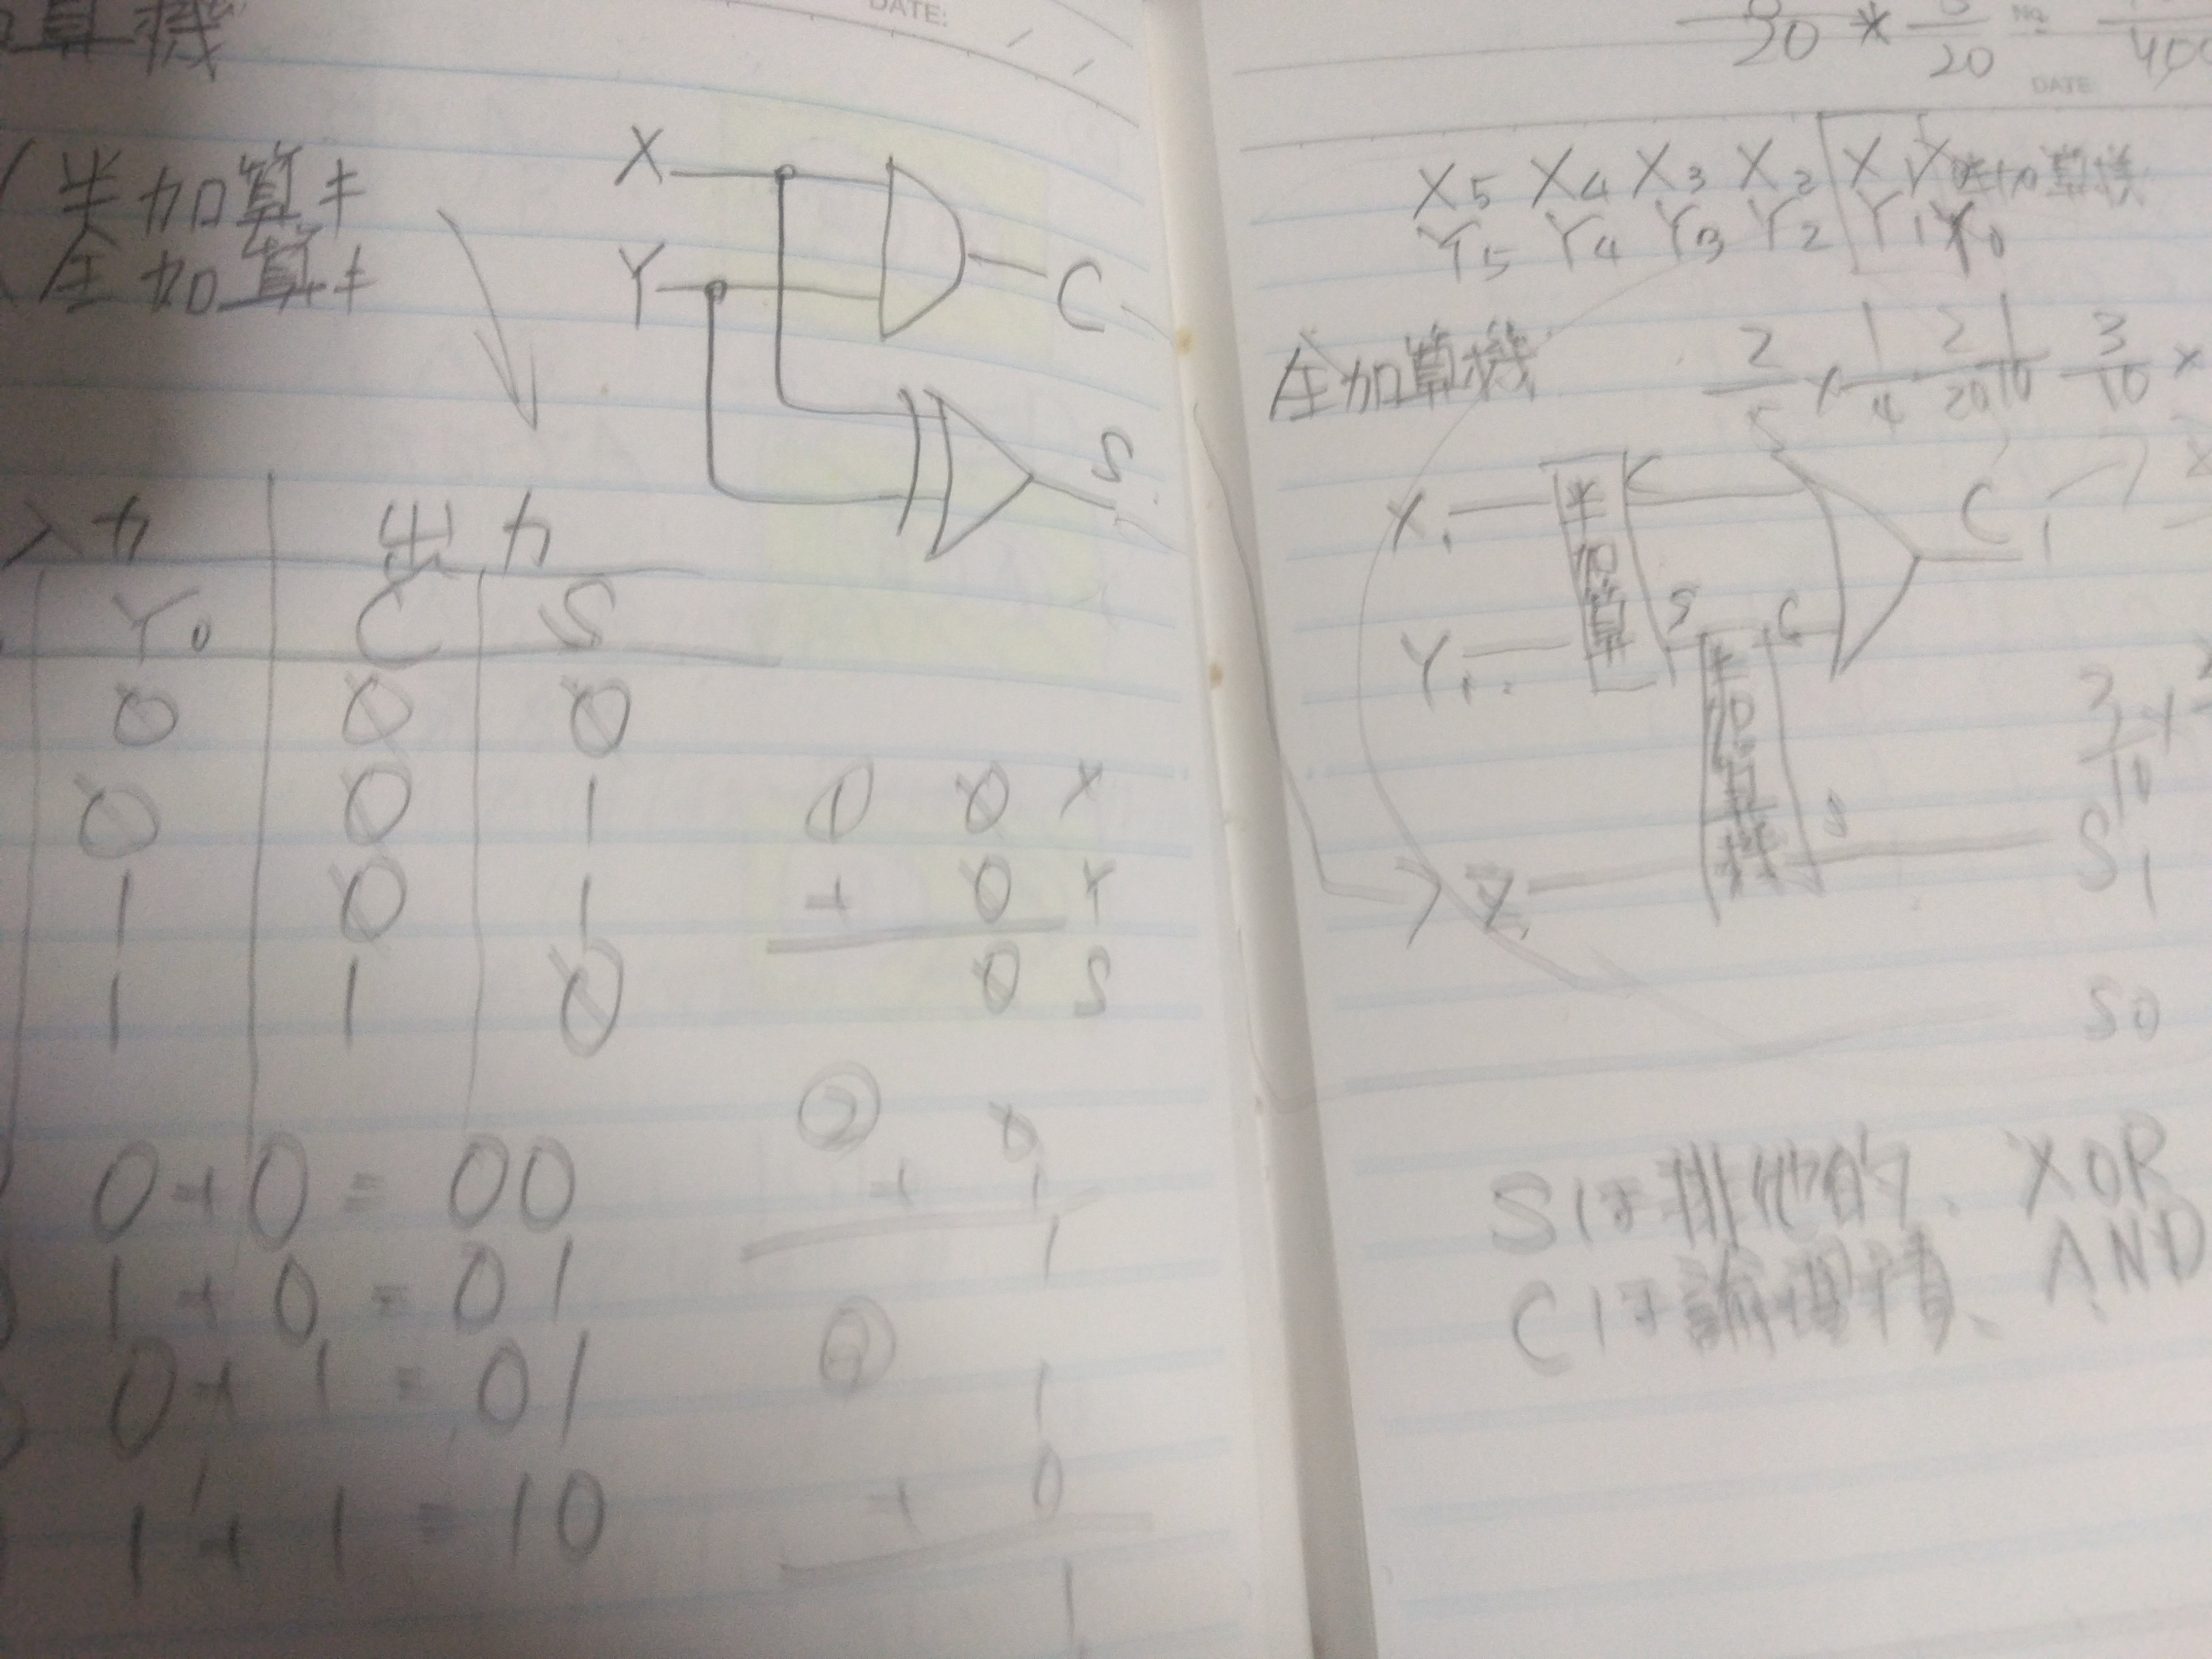 算機
DATE:
半加算キ
全加算キ
X
Y
C
S
入力 出力
Y0 C S
0 0 0
0 0 1
1 0 1
1 1 0
① 0 X
+ 0 Y
0 S
0+0=00
1+0=01
0+1=01
1+1=10
②
+ 1
1
1
+ 0
1
20 * 20 400
No.
DATE
X5 X4 X3 X2 X1 X0 半加算機
Y5 Y4 Y3 Y2 Y1 Y0
全加算機
2/5 × 1/4 2/20 1/10 3/10 ×
X1 半加算 C C1
Y1 S C
半加算機
Z1 S S1
3/10 ×
S0
Sは排他的、XOR
Cは論理積、AND